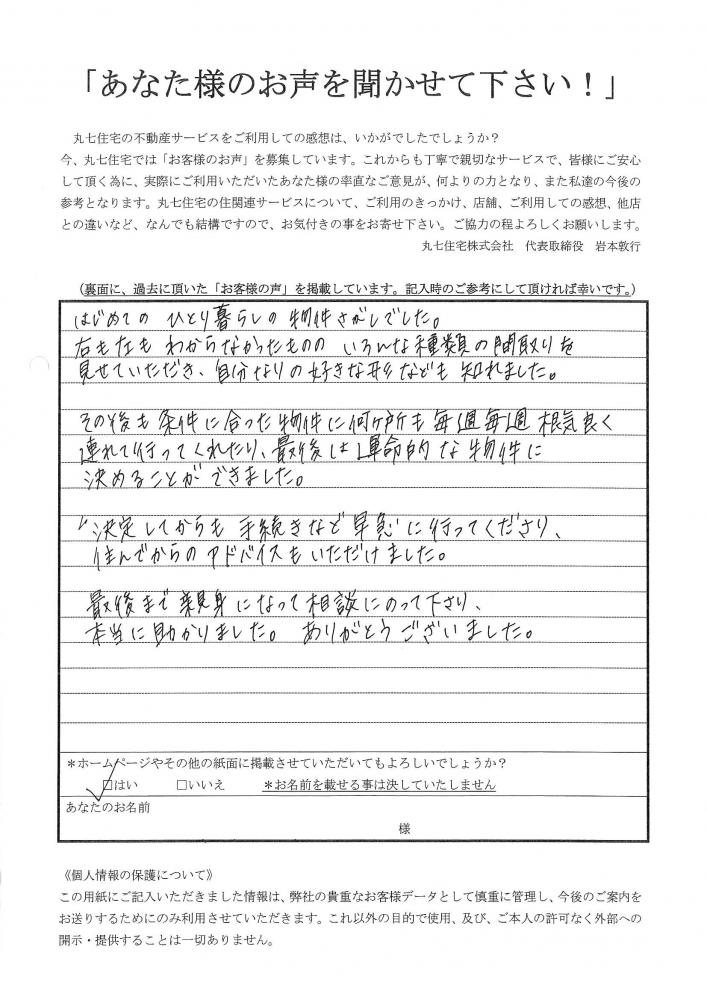 「あなた様のお声を聞かせて下さい！」
丸七住宅の不動産サービスをご利用しての感想は、いかがでしたでしょうか？
今、丸七住宅では「お客様のお声」を募集しています。これからも丁寧で親切なサービスで、皆様にご安心
して頂く為に、実際にご利用いただいたあなた様の率直なご意見が、何よりの力となり、また私達の今後の
参考となります。丸七住宅の住関連サービスについて、ご利用のきっかけ、店舗、ご利用しての感想、他店
との違いなど、なんでも結構ですので、お気付きの事をお寄せ下さい。ご協力の程よろしくお願いします。
丸七住宅株式会社　代表取締役　岩本敦行
（裏面に、過去に頂いた「お客様の声」を掲載しています。記入時のご参考にして頂ければ幸いです。）
はじめての ひとり暮らしの 物件さがしでした。
右も左も わからなかったものの いろんな種類の間取りを
見せていただき、自分なりの好きな形なども 知れました。
その後も 条件に合った物件に何ヶ所も 毎週毎週 根気良く
連れて行ってくれたり、最後は運命的な物件に
決めることができました。
決定してからも 手続きなど 早急に行ってくださり、
住んでからのアドバイスもいただけました。
最後まで 親身になって相談にのって下さり、
本当に助かりました。 ありがとうございました。
＊ホームページやその他の紙面に掲載させていただいてもよろしいでしょうか？
☑はい　□いいえ　＊お名前を載せる事は決していたしません
あなたのお名前
様
《個人情報の保護について》
この用紙にご記入いただきました情報は、弊社の貴重なお客様データとして慎重に管理し、今後のご案内を
お送りするためにのみ利用させていただきます。これ以外の目的で使用、及び、ご本人の許可なく外部への
開示・提供することは一切ありません。